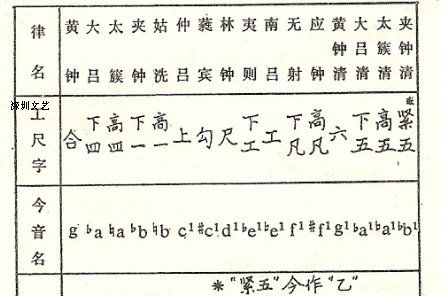 律名 黄钟 大吕 太簇 夹钟 姑洗 仲吕 蕤宾 林钟 夷则 南吕 无射 应钟 黄钟清 大吕清 太簇清 夹钟清
深圳文艺
工尺字 合 下四 高四 下一 高一 上 勾 尺 下工 工 下凡 高凡 六 下五 高五 *紧五
今音名 g ♭a ♮a ♭b ♮b c¹ ♯c¹ d¹ ♭e¹ ♮e¹ f¹ ♯f¹ g¹ ♭a¹ ♮a¹ ♭b¹
*"紧五"今作"乙"